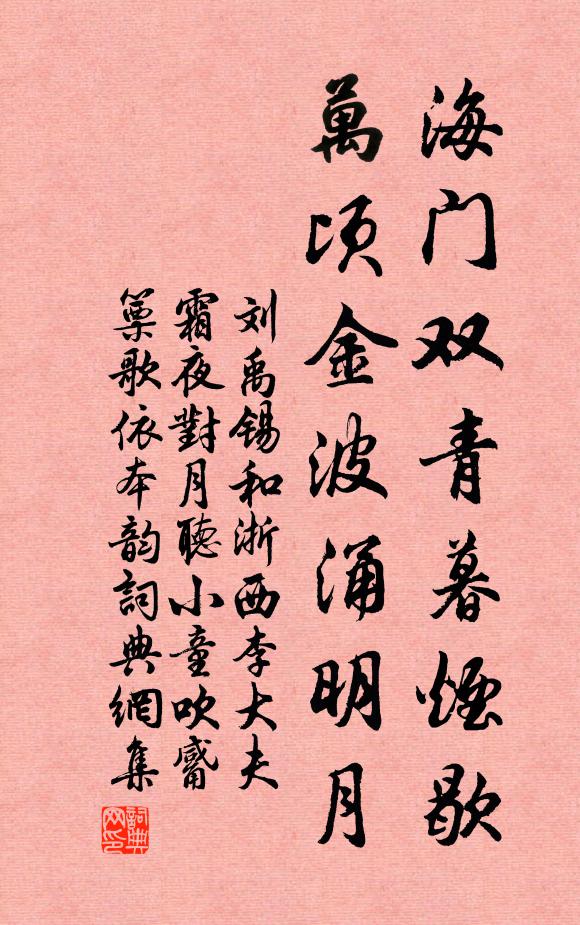 海门双青暮煙歇
萬頃金波涌明月
刘禹锡和浙西李大夫
霜夜對月聽小童吹觱
篥歌依本韵詞典網集
詞典网印